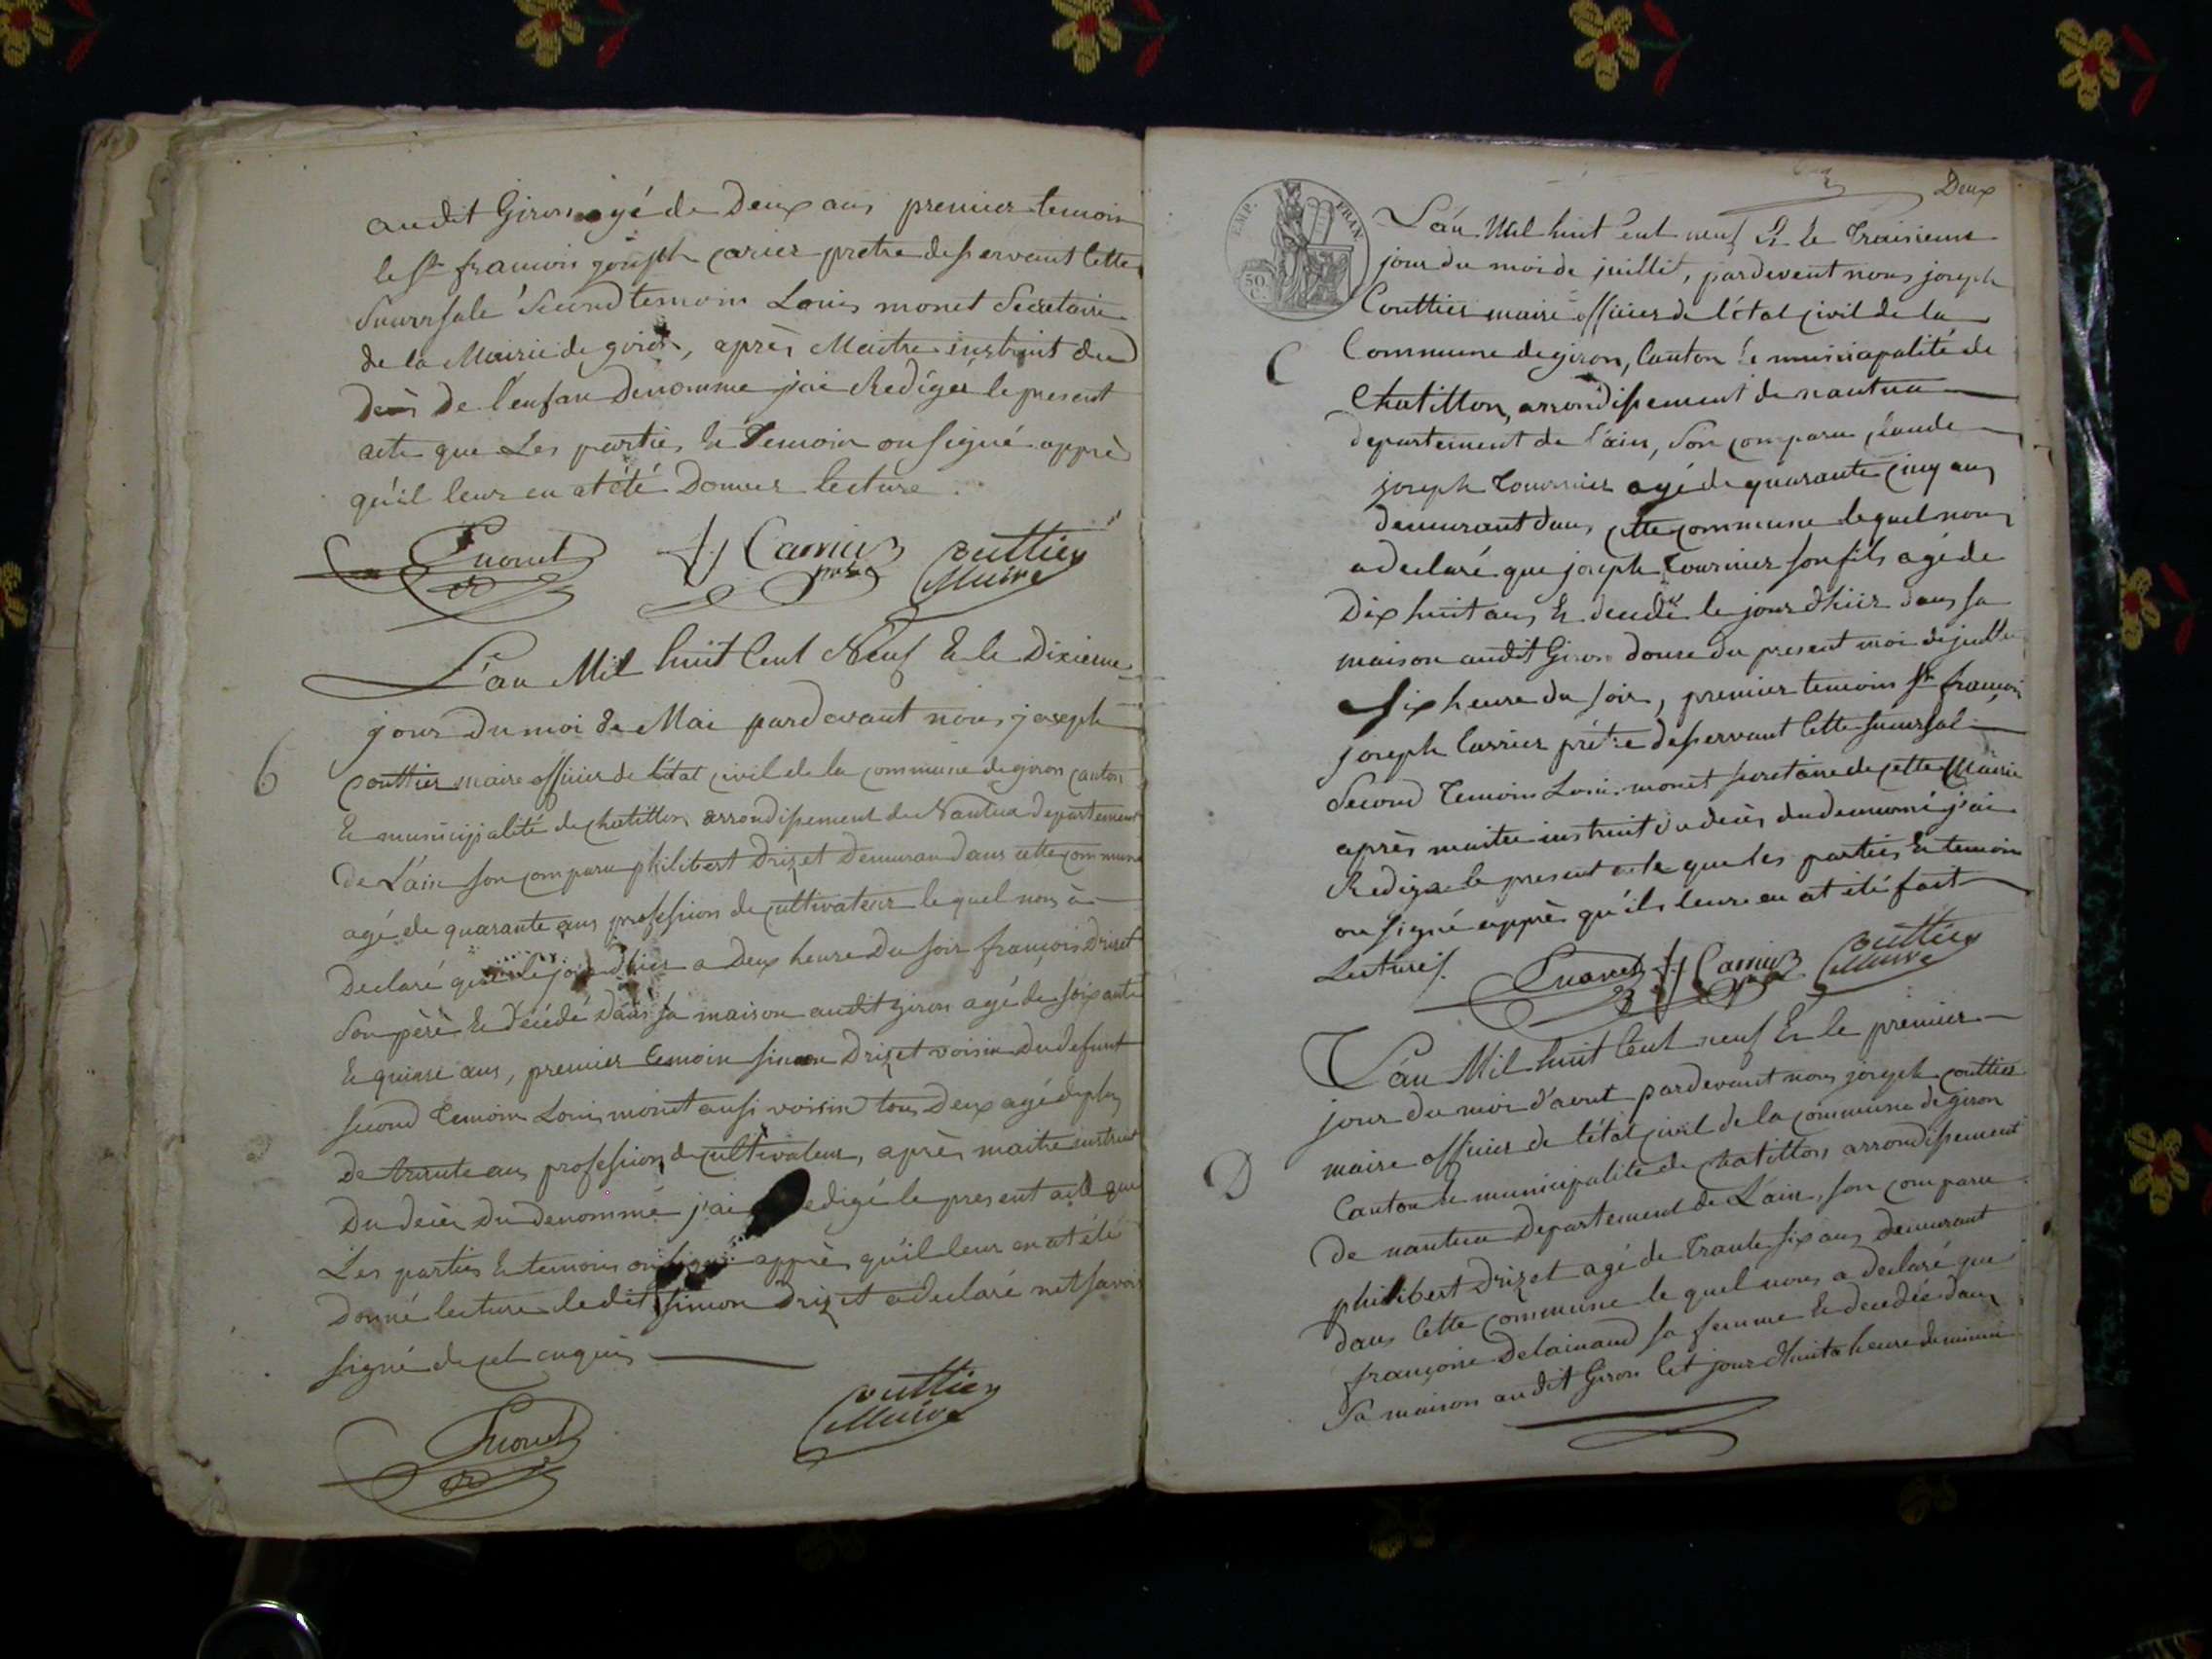 audit Giron agé de Deux ans premier temoin
le Sr francois goseph carier pretre desservant cette
Sucursale Second temoin Louis monet Secretaire
de la Mairie de giron, après Maitre instruit du
decès de l'enfan Denomme jai Redigés le present
acte que Les parties Et Temoin on signé apprè
qu'il leur en at été Donner lecture.
Monet
fj Carrier
pretre
Couttier
Maire
L'an Mil huit Cent Neuf Et le Dixieme
jour du moi de Mai pardevant nous joseph
6
Couttier maire officier de l'état civil de la commune de giron canton
Et municipalité de chatillon arrondissement de Nantua departement
De L'ain son comparu philibert Drizet Demuran dans cette commune
agé de quarante ans profession de cultivateur le quel nous à
Declaré que le jour d'hier a Deux heure Du soir francois Drizet
Son père Et décédé Dans sa maison audit giron agé de soixante
Et quinse ans, premier temoin simon Drizet voisin Du defunt
second temoin Louis monet ausi voisin tous Deux agé de plus
De trente ans profession de cultivateur, après maitre instruit
Du decès Du denommé j'ai redigé le present acte que
Les parties Et temoin on signé apprès qu'il leur en at été
Donné lecture ledit simon Drizet a declaré net savoir
signé de cet enquis
Monet
Couttier
Maire
Deux
EMP. FRAN.
50
C.
L'an Mil huit Cent neuf Et le Troisieme
jour du moi de juillet, pardevent nous joseph
Couttier maire officier de l'état civil de la
C
Commune de giron, Canton Et municapalité de
Chatillon, arrondissement de nantua
departement de l'ain, Son comparu claude
joseph Tournier agé de quarante cinq ans
demeurant dans cette commune lequel nous
a declaré que joseph Tournier son fils agé de
Dix huit ans Et decedé le jour d'hier dans sa
maison audit Giron douse du present moi de juillet
Six heure du soir, premier temoin Sr francois
joseph Carrier prétre desservant Cette sucursal
Second Temoin Louis monet secretaire de cette Mairie
après maitre instruit du decès du denomé j'ai
Redigé le present acte que les parties Et temoin
on signé apprès qu'il leure en at été fait
Lectures.
Monet
fj Carrier
Couttier
Maire
L'an Mil huit Cent neuf Et le premier
jour du moi d'aout pardevant nous joseph couttier
maire officier de l'état civil de la commune de giron
D
Canton Et municipalité de chatillon arrondissement
De nantua Departement de L'ain, son comparu
philibert Drizet agé de Trante six ans Demeurant
dans Cette commune le quel nous a declaré que
françoise Delainaud sa femme Et decedée dans
Sa maison audit Giron Cet jour d'huit a heure de minui